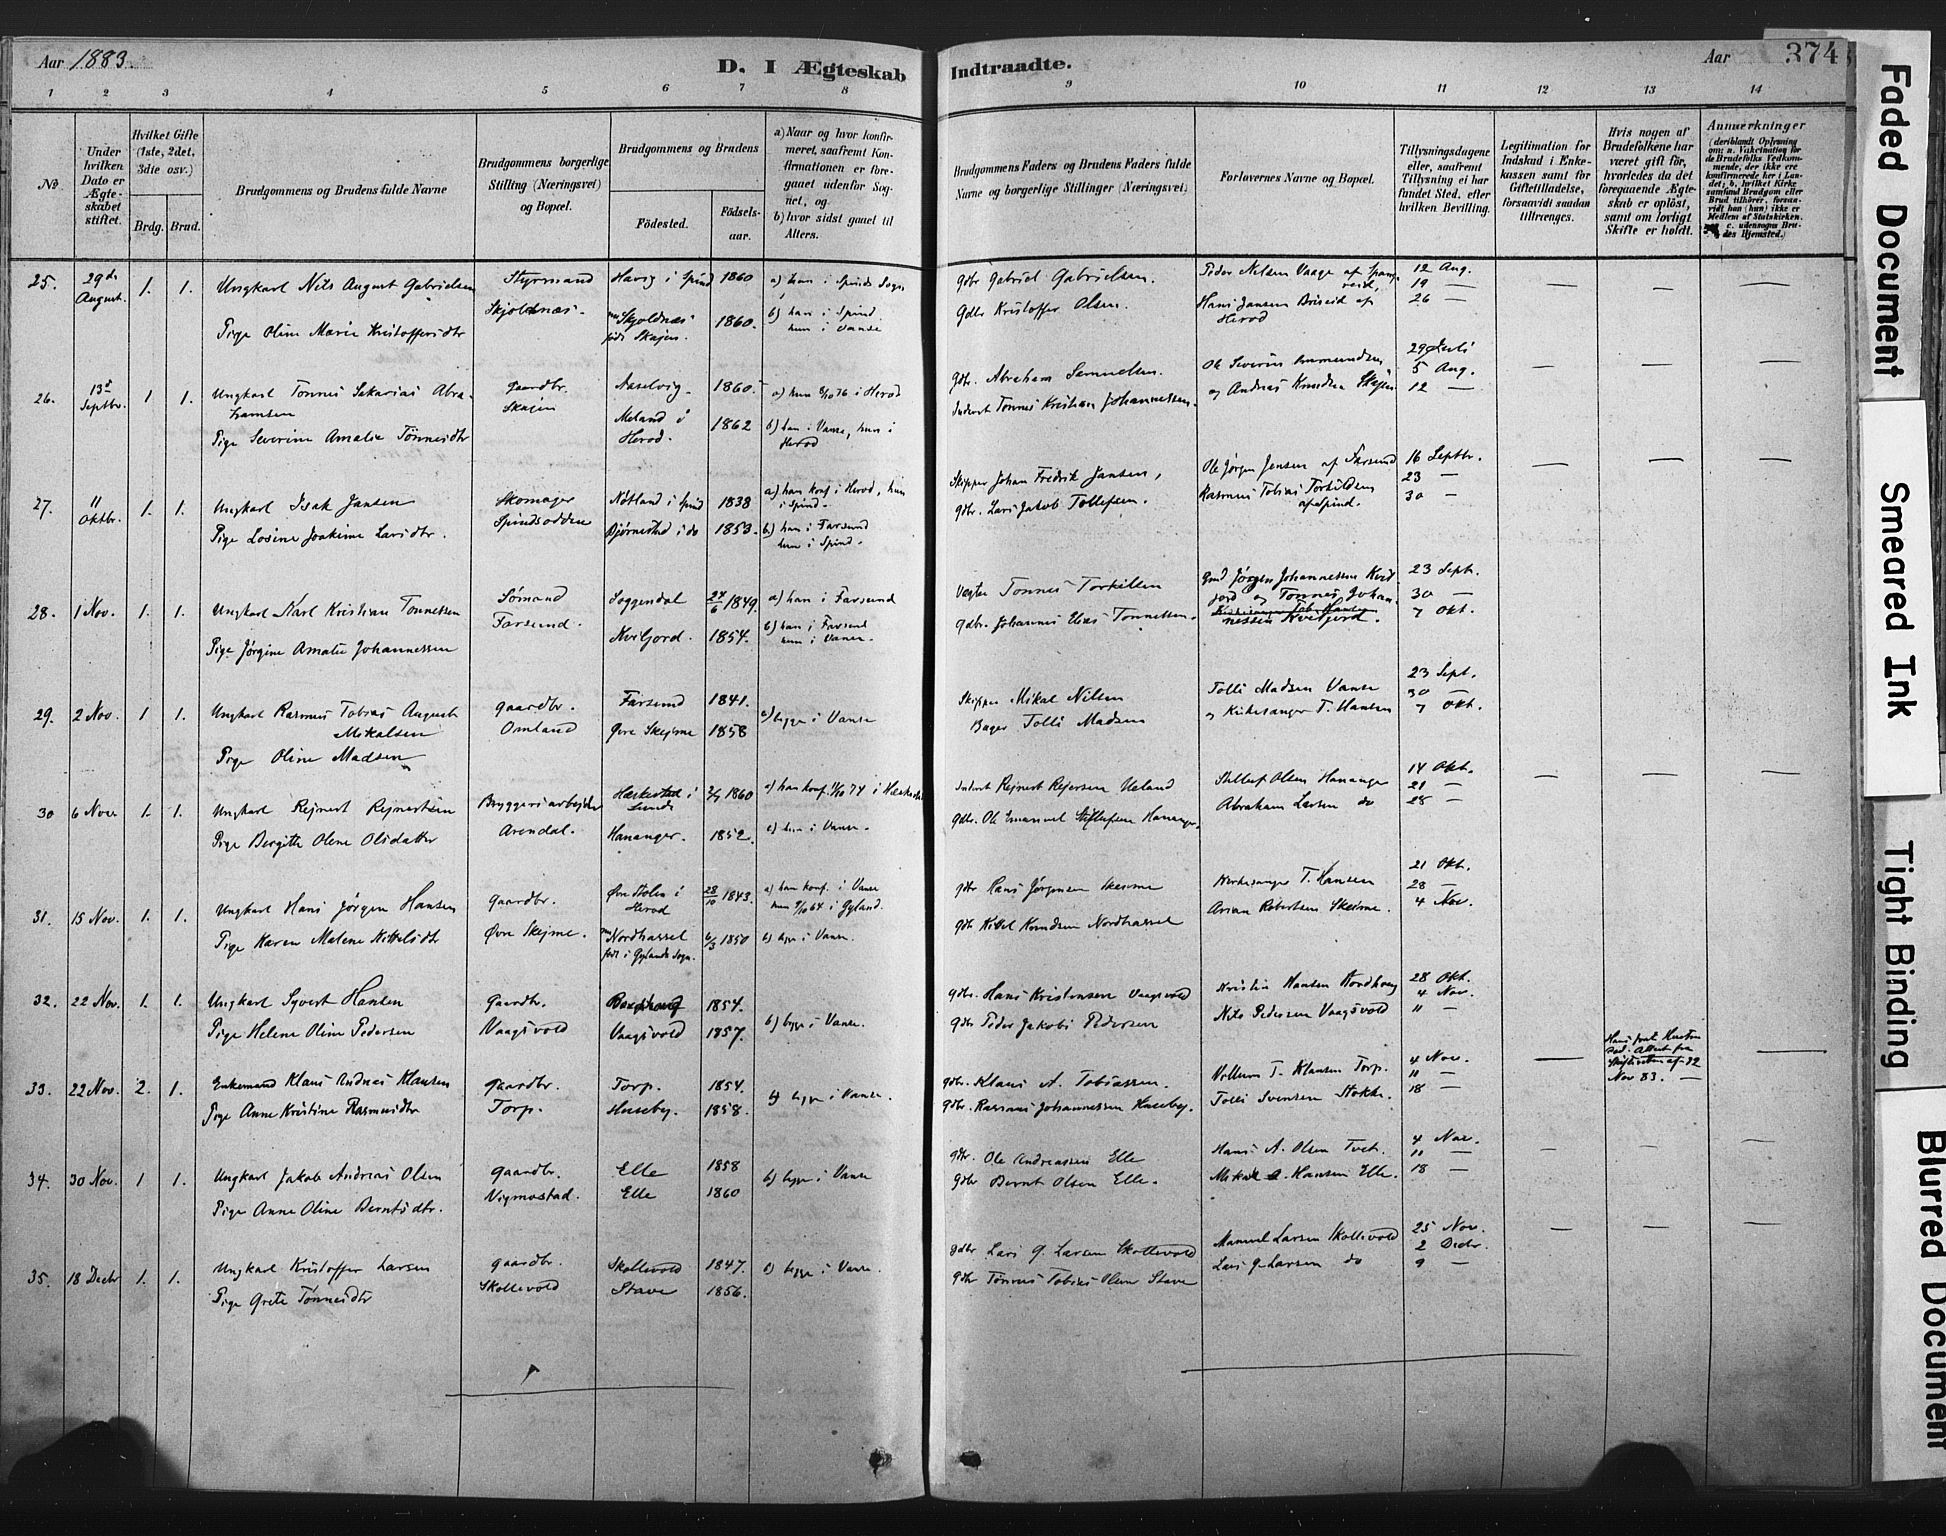 Aar 1883.
D. I Ægteskab Indtraadte.
Aar 374
1 2 3 4 5 6 7 8 9 10 11 12 13 14
No.
Under hvilken Dato er Ægteskabet stiftet.
Hvilket Gifte (1ste, 2det, 3die osv.)
Brdg. Brud.
Brudgommens og Brudens fulde Navne
Brudgommens borgerlige Stilling (Næringsvei) og Bopæl.
Brudgommens og Brudens
Fødested.
Fødselsaar.
a) Naar og hvor konfirmeret, saafremt Konfirmationen er foregaaet udenfor Sognet, og
b) hvor sidst gaaet til Alters.
Brudgommens Faders og Brudens Faders fulde Navne og borgerlige Stillinger (Næringsvei).
Forlovernes Navne og Bopæl.
Tillysningsdagene eller, saafremt Tillysning ei har fundet Sted, efter hvilken Bevilling.
Legitimation for Indskud i Enkekassen samt for Giftetilladelse, forsaavidt saadan tiltrænges.
Hvis nogen af Brudefolkene har været gift før, hvorledes da det foregaaende Ægteskab er opløst, samt om lovligt Skifte er holdt.
Anmerkninger (deriblandt Oplysning om: a. Vakcination for de Brudefolks Vedkommende, der ikke ere konfirmerede her i Landet; b. hvilket Kirkesamfund Brudgom eller Brud tilhører, forsaavidt han (hun) ikke er Medlem af Statskirken. c. udensogns Brudes Hjemsted.)
25. 29de August. 1. 1. Ungkarl Nils August Gabrielsen Styrmand Havig i Spind 1860 a) han i Spinds Sogn Gdbr Gabriel Gabrielsen. Peder Nilsen Vaage af Spangereid, 12 Aug. 19 —
Pige Oline Marie Kristoffersdtr Skjoldnæs. Skjoldnæs født Skajen. 1860. b) han i Spind hun i Vanse Gdbr Kristoffer Olsen. Hans Jansen Briseid af Herod 26 —
26. 13de Septbr. 1 1. Ungkarl Tønnes Sakarias Abrahamsen Gaardbr. Skajen Aaselvig. 1860. a) hun 8/10 76 i Herod Gdbr. Abraham Samuelsen. Ole Severin 29 Juli 5 Aug.
Pige Severine Amalie Tønnesdtr Meland i Herod. 1862 b) han i Vanse, hun i Herod Inderst Tønnes Kristian Johannessen. og Andreas Knudsen Skajen 12 —
27. 11 Oktbr. 1. 1. Ungkarl Isak Jansen Skomager Nøtland i Spind 1838 a) han konf. i Herod, hun i Spind. Skipper Johan Fredrik Jansen, Ole Jørgen Jensen af Farsund 16 Septbr. 23 —
Pige Losine Joakime Larsdtr. Spindsodden Bjørnestad i do 1853. b) han i Farsund hun i Spind. Gdbr. Lars Jakob Tollefsen. Rasmus Tobias Torkildsen af Spind. 30 —
28. 1 Nov. 1. 1. Ungkarl Karl Kristian Tønnessen Sømand Soggendal 24/6 1849. a) han i Farsund Vægter Tønnes Torkilsen Gmd Jørgen Johannessen Kvidjord og Tønnes Johannessen Kviljord. 23 Sept. 30 —
Pige Jørgine Amalie Johannessen Farsund. Kviljord. 1854. b) han i Farsund hun i Vanse. Gdbr. Johannes Elias Tønnessen. 7 Okt.
29. 2 Nov. 1 1. Ungkarl Rasmus Tobias August Mikalsen Gaardbr. Farsund 1841. b) begge i Vanse Skipper Mikal Nilsen Tolli Madsen Vanse 23 Sept. 30 —
Pige Oline Madsen Omland Øvre Skejme 1858 Bager Tolli Madsen og Kirkesanger T. Hansen 7 Okt.
30 6 Nov. 1. 1. Ungkarl Rejnert Rejnertsen Bryggeriarbejder Hæskestad i Lunde 2/7 1860 a) han konf. 11/10 74 i Hæskestad Inderst Rejnert Rejersen Ueland Stillef Olsen Hananger 14 Okt. 21 —
Pige Bergitte Olene Olsdatter Arendal. Hananger. 1852. b) hun i Vanse. Gdbr. Ole Emanuel Stillefsen Hananger, Abraham Larsen do 28 —
31. 15 Nov. 1. 1. Ungkarl Hans Jørgen Hansen Gaardbr. Øvre Stolen i Herod 28/10 1843. a) han konf. i Vanse hun 9/10 64 i Gyland. Gdbr Hans Jørgensen Skejme Kirkesanger T. Hansen 21 Okt. 28 —
Pige Karen Malene Kittelsdtr Øvre Skejme. Nordhassel født i Gylands Sogn. 6/3 1850 b) begge i Vanse. Gdbr Kittel Knudsen Nordhassel Arian Robertsen Skejme. 4 Nov.
32. 22 Nov. 1. 1. Ungkarl Syvert Hansen Gaardbr. 1854. b) begge i Vanse. Gdbr. Hans Kristensen Vaagsvold Kristen Hansen Nordhoug 28 Okt. 4 Nov.
Pige Helene Oline Pedersen Vaagsvold Vaagsvold 1857. Gdbr Peder Jakobs Pedersen Nils Pedersen Vaagsvold 11 —
33. 22 Nov. 2. 1. Enkemand Klaus Andreas Klausen Gaardbr. Torp. 1854. b) begge i Vanse. Gdbr. Klaus A. Tobiassen. Villum T. Klausen Torp. 4 Nov. 11 — Hans Attest fra Skifteretten af 12 Nov 83. —
Pige Anne Kristine Rasmusdtr Torp. Huseby. 1858. Gdbr. Rasmus Johannessen Huseby. Tolli Svensen Stokke. 18 —
34. 30 Nov. 1 1. Ungkarl Jakob Andreas Olsen Gaardbr. Elle 1858 b) begge i Vanse Gdbr. Ole Andreassen Elle Hans A. Olsen Tvet. 4 Nov. 11 —
Pige Anne Oline Berntsdtr. Vigmostad. Elle 1860 Gdbr Bernt Olsen Elle. Mikal A. Hansen Elle. 18 —
35. 18 Decbr 1. 1. Ungkarl Kristoffer Larsen Gaardbr. Skollevold 1847. b) begge i Vanse. Gdbr Lars G. Larsen Skollevold Manuel Larsen Skollevold 25 Nov. 2 Decbr.
Pige Grete Tønnesdtr Skollevold Stave 1856. Gdbr Tønnes Tobias Olsen Stave Lars G. Larsen do 9 —
Faded Document
Smeared Ink
Tight Binding
Blurred Document